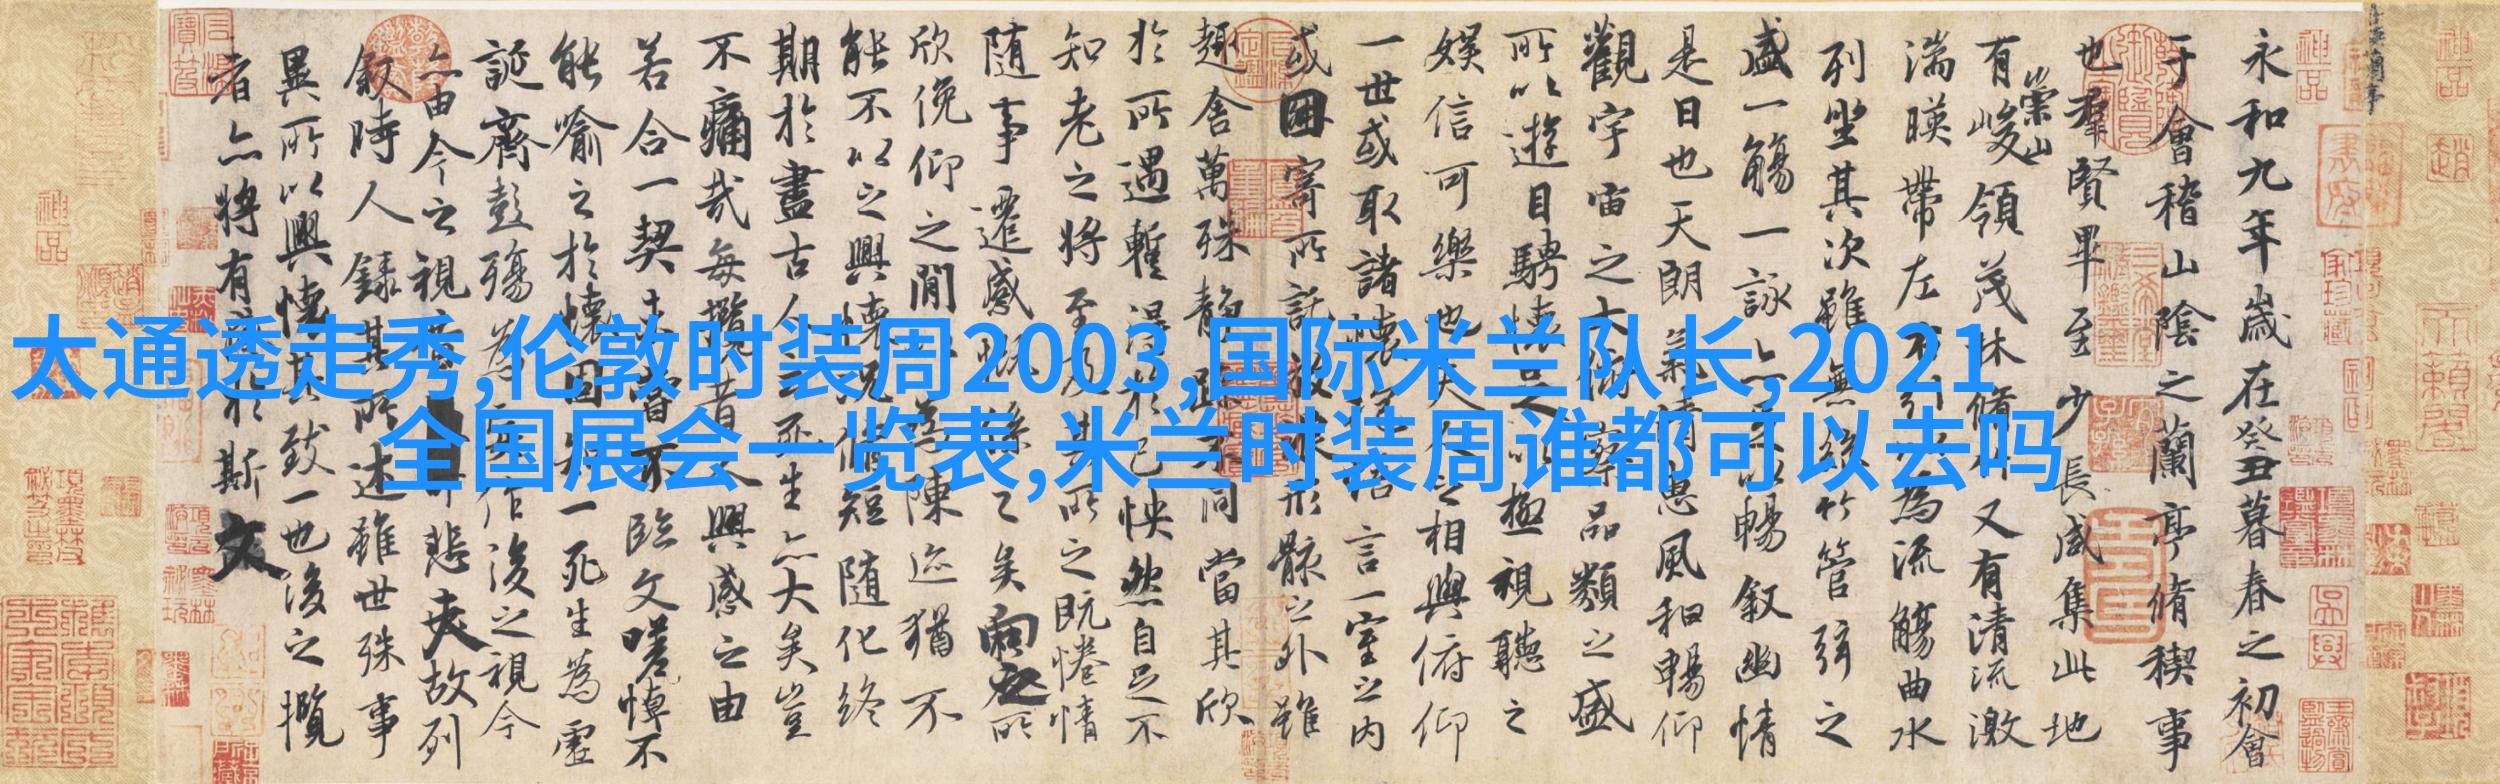 太通透走秀,伦敦时装周2003,国际米兰队长,2021
全国展会一览表,米兰时装周谁都可以去吗
永和九年歲在癸丑暮春之初會
于會稽山陰之蘭亭脩稧事
也羣賢畢至少長咸集此地
有崇山峻領茂林脩竹又有清流激
湍暎帶左右引以為流觴曲水
列坐其次雖無絲竹管弦之
盛一觴一詠亦足以暢叙幽情
是日也天朗氣清惠風和暢仰
觀宇宙之大俯察品類之盛
所以遊目騁懷足以極視聽之
娛信可樂也夫人之相與俯仰
一世或取諸懷抱悟言一室之內
或因寄所託放浪形骸之外雖
趣舍萬殊靜躁不同當其欣
於所遇暫得於己怏然自足不
知老之將至及其所之既惓情
隨事遷感慨係之矣向之所
欣俛仰之閒以為陳迹猶不
能不以之興懷況脩短隨化終
期於盡古人云死生亦大矣豈
不痛哉每攬昔人興感之由
若合一契未嘗不臨文嗟悼不
能喻之於懷固知一死生為虛
誕齊彭殤為妄作後之視今
亦由今之視昔悲夫故列
叙時人錄其所述雖世殊事
異所以興懷其致一也後之攬
者亦將有感於斯文